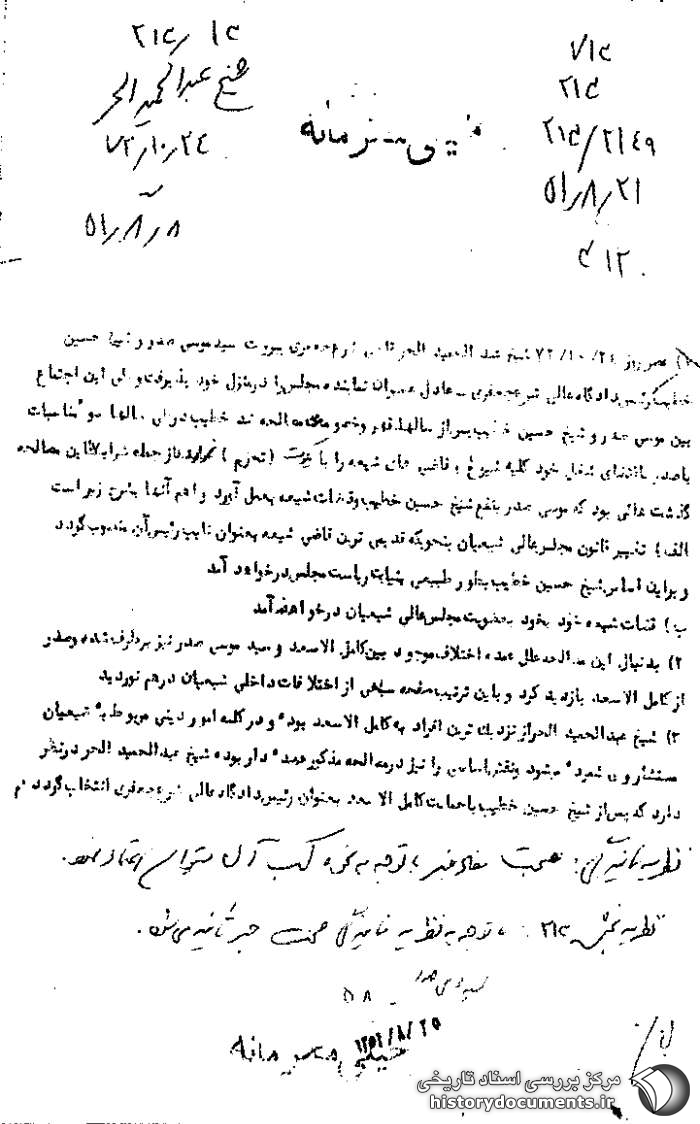 ۲۱۴/ ۱۴
شیخ عبدالحمید الحر
۷۲ر۱۰ر۲۴
۵۱ر۸ر۸
۷۱۴
۲۱۴
۲۱۴/۲۱۴۹
۵۱ر۸ر۲۱
۴ ۱۲
خیلی محرمانه
۱) عصر روز ۷۲/۱۰/۲۴ شیخ عبد الحمید الحر قاضی شرع جعفری بیروت سید موسی صدر و شیخ حسین
خطیب رئیس دادگاه عالی شرع جعفری عادل عسیران نماینده مجلس را در منزل خود پذیرفت و طی این اجتماع
بین موسی صدر و شیخ حسین خطیب پس از سالها قهر و خصومت مصالحه شد خطیب در طی سالها سو مناسبات
با صدر کلیه شیوخ و قاضی های شیعه را با (تحزم) از جمله شرایط این مصالحه
گذشت هائی بود که موسی صدر بنفع شیخ حسین خطیب و قضات شیعه بعمل آورد و اهم آنها بشرح زیر است
الف) تغییر قانون مجلس عالی شیعیان بنحویکه قدیمی ترین قاضی شیعه بعنوان نایب رئیس آن منصوب گردد
و براین اساس شیخ حسین خطیب بطور طبیعی بنیابت ریاست مجلس در خواهد آمد
ب) قضات شیعه خود بخود بعضویت مجلس عالی شیعیان در خواهند آمد
۲) بدنبال این مصالحه علل عمده اختلاف موجود بین کامل الاسعد و سید موسی صدر نیز برطرف شده و صدر
از کامل الاسعد بازدید کرد و باین ترتیب صفحه سیاهی از اختلافات داخلی شیعیان درهم نوردید
۳) شیخ عبدالحمید الحر از نزدیک ترین افراد به کامل الاسعد بوده و در کلیه امور دینی مربوط به شیعیان
مستشار وی شمرده میشود و نقش اساسی را نیز در مصالحه مذکور عهده دار بوده شیخ عبدالحمید الحر در نظر
دارد که پس از شیخ حسین خطیب با حمایت کامل الاسعد بعنوان رئیس دادگاه عالی شرع جعفری انتخاب گردد
نظریه نمایندگی: صحت مفاد خبر با توجه به نحوه کسب آن میتوان اعتماد نمود.
نظریه بخش ۲۱۴: با توجه به نظریه نمایندگی صحت خبر تأیید می‌شود.
سید موسی صدر
۵۸
۱۳۵۱/۸/۲۵
خیلی محرمانه
مرکز بررسی اسناد تاریخی
historydocuments.ir